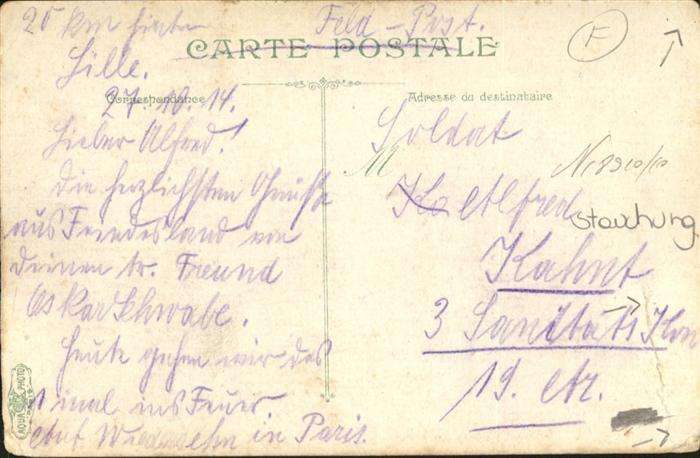 20 km hinter
Lille.
27.10.14.
Feld-Post.
CARTE POSTALE
F
Correspondance
Adresse du destinataire
Lieber Alfred!
Die herzlichsten Grüsse
aus Feindesland von
deinen tr. Freund
Oskar Schwabe.
Heute gehen wir das
1 mal ins Feuer.
Auf Wiedersehn in Paris.
Soldat
Alfred
Kahnt
3 Sanitäts
19.
Stauchung
AQUA PHOTO